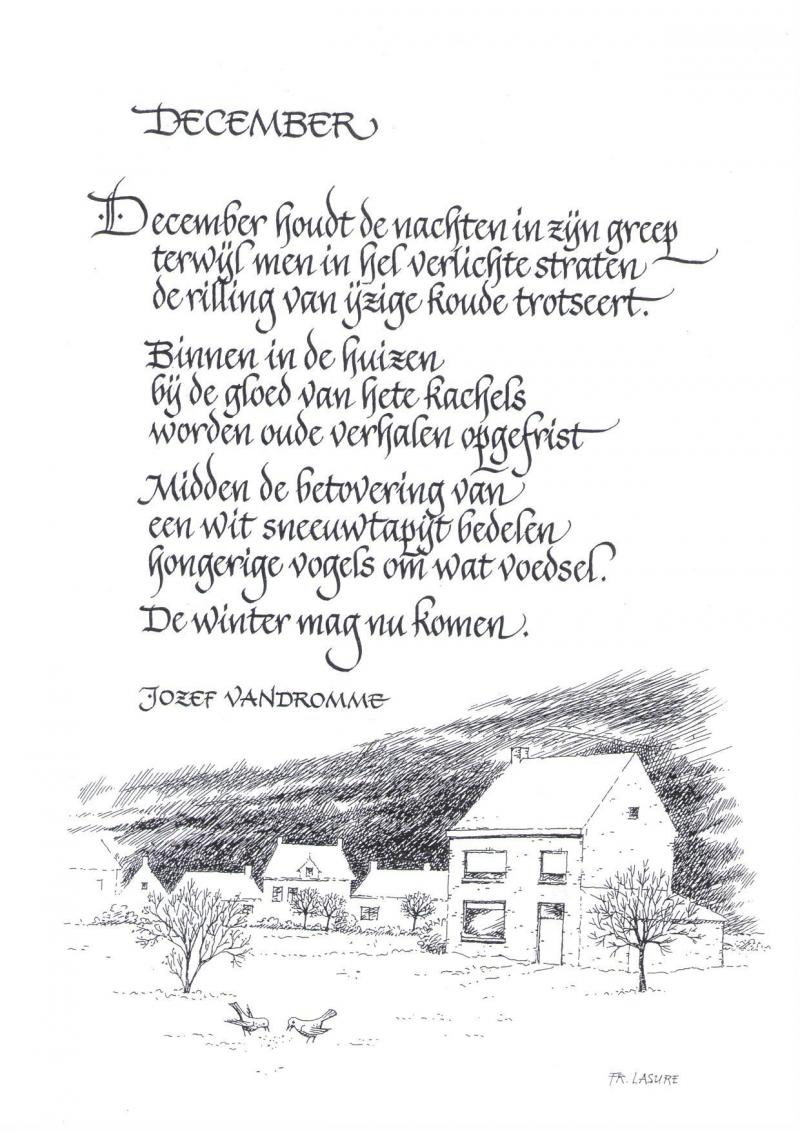 DECEMBER
December houdt de nachten in zijn greep
terwijl men in hel verlichte straten
de rilling van ijzige koude trotseert.
Binnen in de huizen
bij de gloed van hete kachels
worden oude verhalen opgefrist
Midden de betovering van
een wit sneeuwtapijt bedelen
hongerige vogels om wat voedsel.
De winter mag nu komen.
JOZEF VANDROMME
FR. LASURE